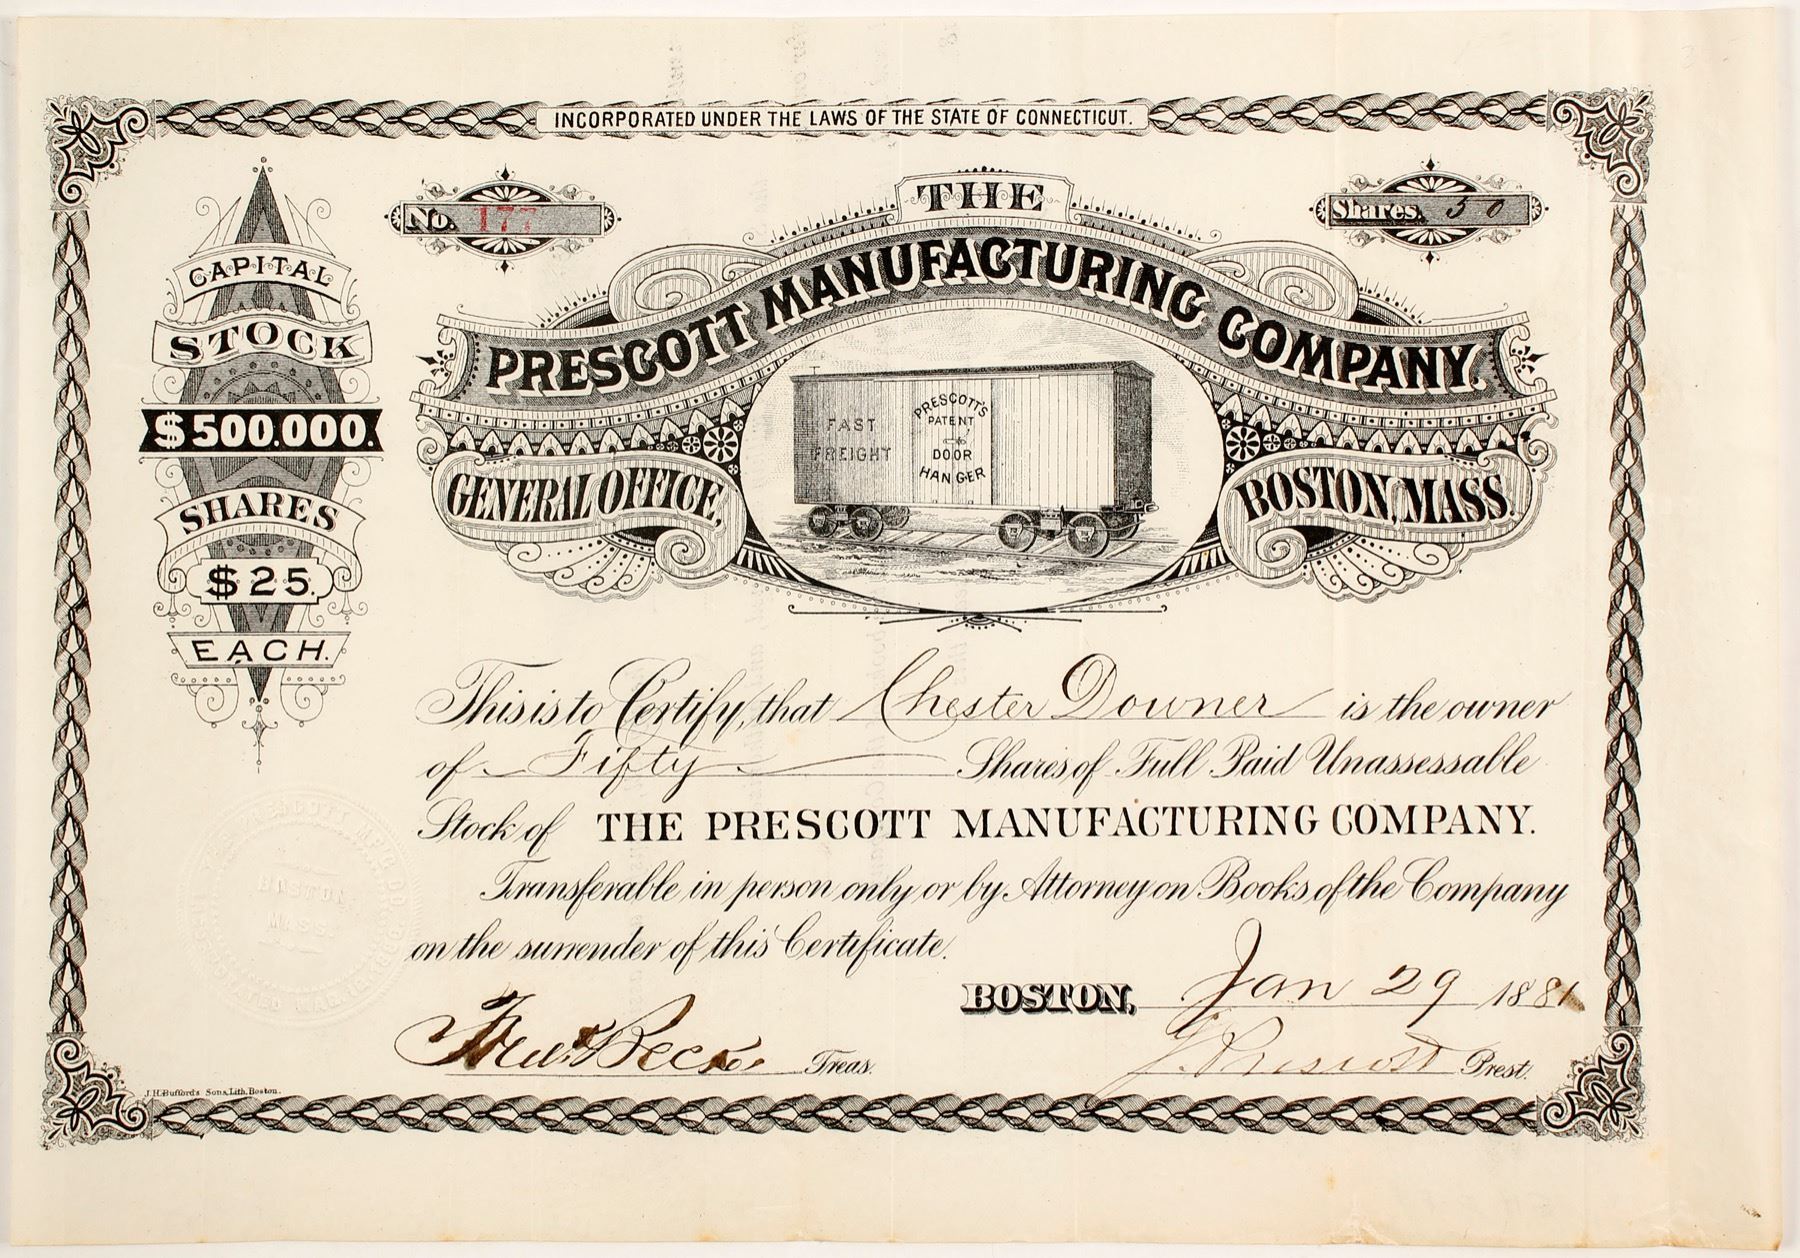 INCORPORATED UNDER THE LAWS OF THE STATE OF CONNECTICUT.
No. 177
Shares. 50
THE
PRESCOTT MANUFACTURING COMPANY.
GENERAL OFFICE,
BOSTON, MASS.
FAST
FREIGHT
PRESCOTT'S
PATENT
DOOR
HANGER
CAPITAL
STOCK
$500.000.
SHARES
$25.
EACH.
This is to Certify, that Chester Downer is the owner
of Fifty Shares of Full Paid Unassessable
Stock of THE PRESCOTT MANUFACTURING COMPANY.
Transferable in person only or by Attorney on Books of the Company
on the surrender of this Certificate.
BOSTON, Jan 29 1881
Treas.
J. Prescott Prest.
BOSTON,
MASS.
J.H. Bufford's Sons, Lith. Boston.